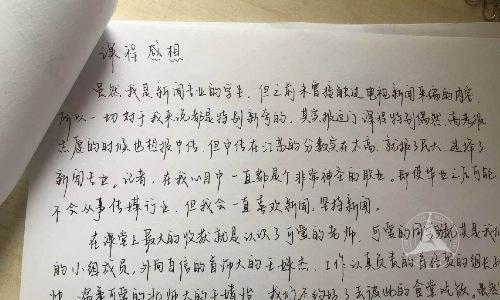 课程感想
虽然我是新闻专业的学生，但之前未曾接触过电视新闻采编的内容，
所以一切对于我来说都是特别新奇的。其实报这门课程特别偶然，高考报
志愿的时候也想报中传，但中传在江苏的分数实在太高，就报了民大，选择了
新闻专业。记者，在我心目中一直都是个非常神圣的职业。即使毕业之后可能
不会从事传媒行业，但我会一直喜欢新闻，坚持新闻。
在课堂上最大的收获就是认识了可爱的老师，可爱的同学，尤其是我们
的小组成员，外向自信的首师大的王姝杰，工作认真负责的